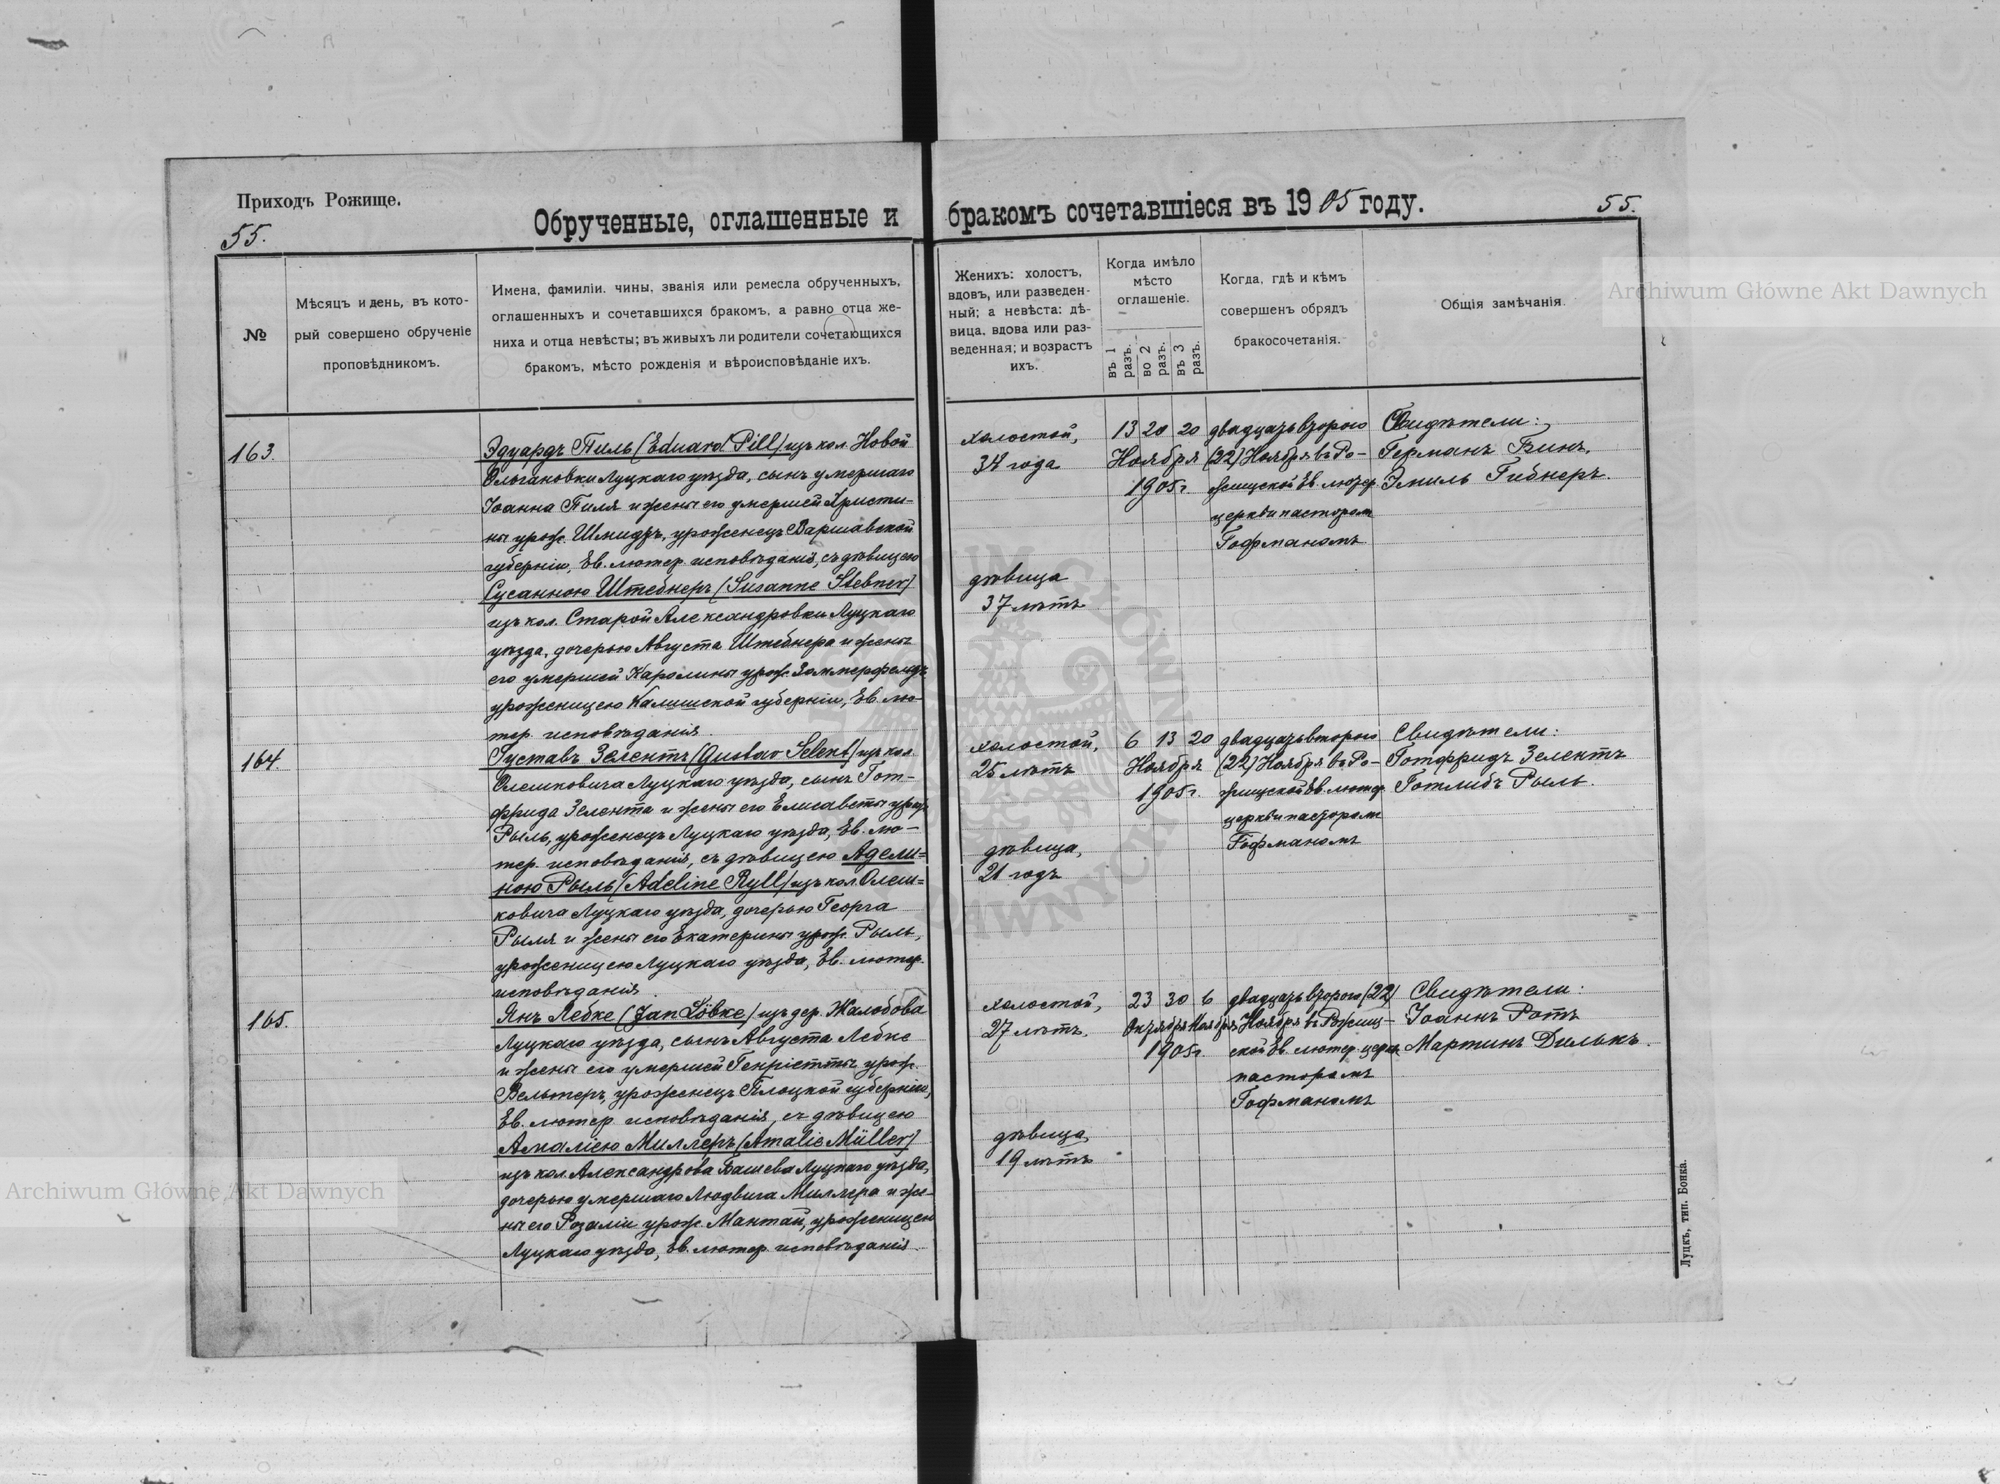 Приходъ Рожище.
55.
Обрученные, оглашенные и бракомъ сочетавшіеся въ 1905 году.
55.
№
Мѣсяцъ и день, въ кото-
рый совершено обрученіе
проповѣдникомъ.
Имена, фамиліи, чины, званія или ремесла обрученныхъ,
оглашенныхъ и сочетавшихся бракомъ, а равно отца же-
ниха и отца невѣсты; въ живыхъ ли родители сочетающихся
бракомъ, мѣсто рожденія и вѣроисповѣданіе ихъ.
Женихъ: холостъ,
вдовъ, или разведен-
ный; а невѣста: дѣ-
вица, вдова или раз-
веденная; и возрастъ
ихъ.
Когда имѣло
мѣсто
оглашеніе.
въ 1 разъ.
во 2 разъ.
въ 3 разъ.
Когда, гдѣ и кѣмъ
совершенъ обрядъ
бракосочетанія.
Общія замѣчанія.
163.
Эдуардъ Пиль (Eduard Pill) изъ кол. Новой
Ольгановки Луцкаго уѣзда, сынъ умершаго
Іоанна Пиля и жены его умершей Христи-
ны урож. Шмидтъ, уроженецъ Варшавской
губерніи, Ев. лютер. исповѣданія, съ дѣвицею
Сусанною Штебнеръ (Susanne Stebner)
изъ кол. Старой Александровки Луцкаго
уѣзда, дочерью Августа Штебнера и жены
его умершей Каролины урож. Зоммерфельдъ
уроженицею Калишской губерніи, Ев. лю-
тер. исповѣданія.
холостой,
34 года
дѣвица
37 лѣтъ
13 20 20
Ноября
1905 г.
двадцать второго
(22) Ноября въ Ро-
жищской Ев. лютер.
церкви пасторомъ
Гофманомъ
Свидѣтели:
Германъ Бинъ,
Эмиль Гибнеръ.
164.
Густавъ Зелентъ (Gustav Selent) изъ кол.
Олешковича Луцкаго уѣзда, сынъ Гот-
фрида Зелента и жены его Елисаветы урож.
Рыль, уроженецъ Луцкаго уѣзда, Ев. лю-
тер. исповѣданія, съ дѣвицею Адели=
ною Рыль (Adeline Ryll) изъ кол. Олеш=
ковича Луцкаго уѣзда, дочерью Георга
Рыля и жены его Екатерины урож. Рыль,
уроженицею Луцкаго уѣзда, Ев. лютер.
исповѣданія.
холостой,
25 лѣтъ
дѣвица,
21 годъ
6 13 20
Ноября
1905 г.
двадцать второго
(22) Ноября въ Ро-
жищской Ев. лютер.
церкви пасторомъ
Гофманомъ
Свидѣтели:
Готфридъ Зелентъ
Готлибъ Рыль.
165.
Янъ Лебке (Jan Löbke) изъ дер. Жалобова
Луцкаго уѣзда, сынъ Августа Лебке
и жены его умершей Генріетты урож.
Вельтеръ, уроженецъ Плоцкой губерніи,
Ев. лютер. исповѣданія, съ дѣвицею
Амаліею Миллеръ (Amalie Müller)
изъ кол. Александрова Башева Луцкаго уѣзда,
дочерью умершаго Людвига Миллера и же-
ны его Розаліи урож. Мантай, уроженицею
Луцкаго уѣзда, Ев. лютер. исповѣданія.
холостой,
27 лѣтъ.
дѣвица,
19 лѣтъ
23 30 6
Октября Ноября
1905 г.
двадцать второго (22)
Ноября въ Рожищ-
ской Ев. лютер. церкв.
пасторомъ
Гофманомъ
Свидѣтели:
Іоаннъ Ротъ
Мартинъ Дилькъ.
Луцкъ, тип. Бонка.
Archiwum Główne Akt Dawnych
Archiwum Główne Akt Dawnych